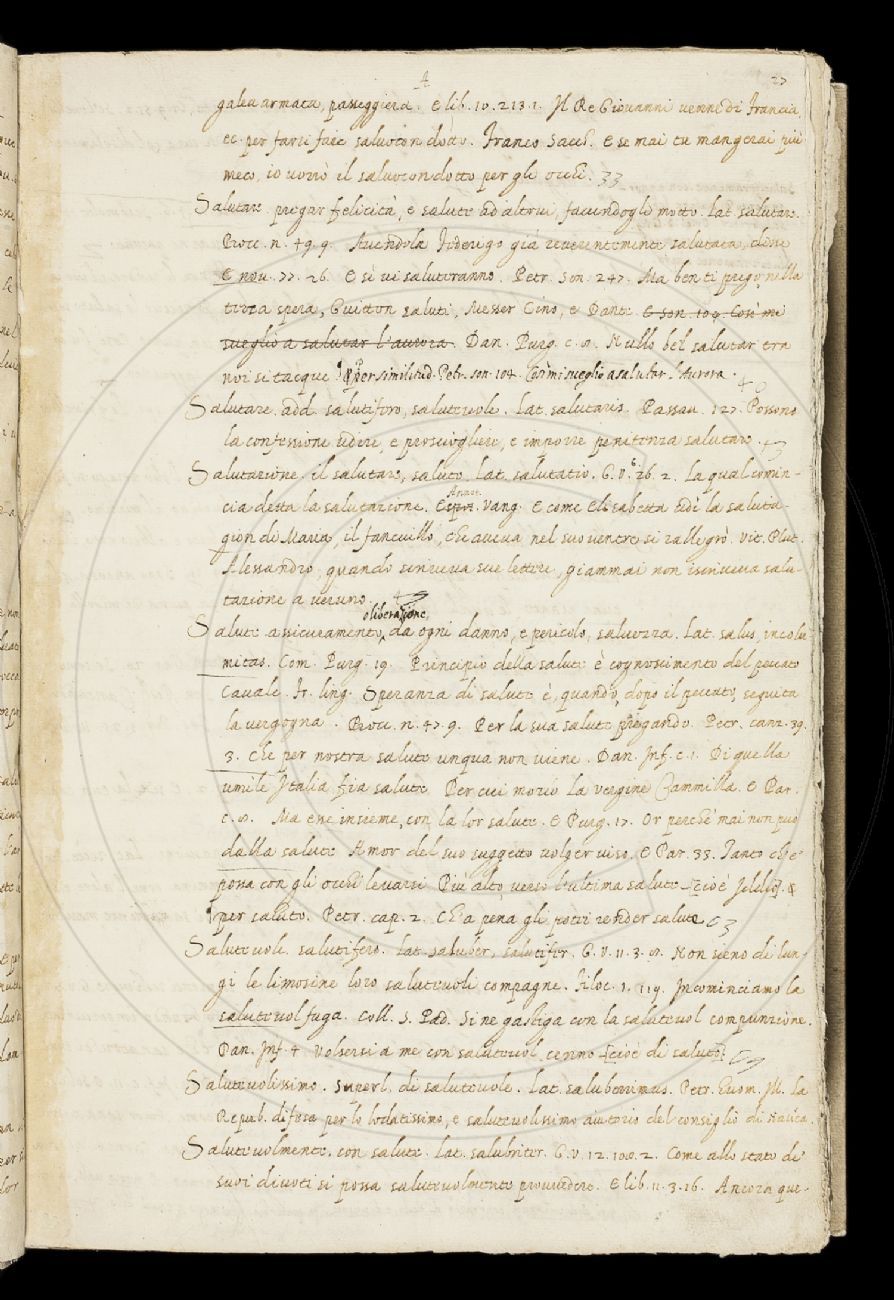 A 27
galea armata, passeggiera. E lib. 10. 213. 1. Il Re Giovanni venne di Francia,
ec. per farsi fare salvocondotto. Franco Sacch. E se mai tu mangerai più
meco, io vorrò il salvocondotto per gli occhi. 33
Salutare. pregar felicità, e salute ad altrui, facendogli motto. Lat. salutare.
Bocc. n. 49. 9. Avendola Federigo già reverentemente salutata, disse
E nov. 77. 26. E sì vi saluteranno. Petr. Son. 247. Ma ben ti prego, nella
terza spera, Guitton saluti, Messer Cino, e Dante. E son. 104. Così mi
sveglio a salutar l'aurora. Dan. Purg. c. 8. Nullo bel salutar tra
noi si tacque per similitud. Petr. son. 104. Così mi sveglio a salutar l'Aurora.
Salutare. add. salutifero, salutevole. Lat. salutaris. Passav. 127. Possono
la confessione udire, e prosciogliere, e imporre penitenza salutare.
Salutazione. il salutare, saluto. Lat. salutatio. G. V. 6. 26. 2. La qual comin-
cia detta la salutazione. Annot. Vang. E come Elisabetta udì la saluta-
gion di Maria, il fanciullo, che aveva nel suo ventre si rallegrò. Vit. Plut.
Alessandro, quando scriveva sue lettere, giammai non iscriveva salu-
tazione a veruno.
o liberazione,
Salute assicuramento, da ogni danno, e pericolo, salvezza. Lat. salus, incolu-
mitas. Com. Purg. 19. Principio della salute è cognoscimento del peccato
Cavalc. Fr. ling. Speranza di salute è, quando, dopo il peccato, seguita
la vergogna. Bocc. n. 47. 9. Per la sua salute pregando. Petr. canz. 39.
3. Che per nostra salute unqua non viene. Dan. Inf. c. 1. Di quella
umile Italia fia salute Per cui morio la vergine Cammilla. E Par.
c. 8. Ma esse insieme, con la lor salute. E Purg. 17. Or perchè mai non può
dalla salute Amor del suo suggetto volger viso. E Par. 33. Tanto che
possa con gli occhi levarsi Più alto verso l'ultima salute [cioè Iddio]. &
per saluto. Petr. cap. 2. Ch'a pena gli potei render salute
Salutevole. salutifero. Lat. saluber, salutifer. G. V. 11. 3. 8. Non sieno di lun-
gi le limosine loro salutevoli compagne. Filoc. 1. 119. Incominciamo la
salutevol fuga. Coll. S. Pad. Si ne gastiga con la salutevol compunzione.
Dan. Inf. 4 Volsersi a me con salutevol, cenno [cioè di saluto]
Salutevolissimo. Superl. di salutevole. Lat. saluberrimus. Petr. Huom. Ill. La
Repub. difesa per lo lodatissimo, e salutevolissimo aiutorio del consiglio di Italica.
Salutevolmente. con salute. Lat. salubriter. G. V. 12. 108. 2. Come allo stato de'
suoi divoti si possa salutevolmente provvedere. E lib. 11. 3. 16. Ancora que-